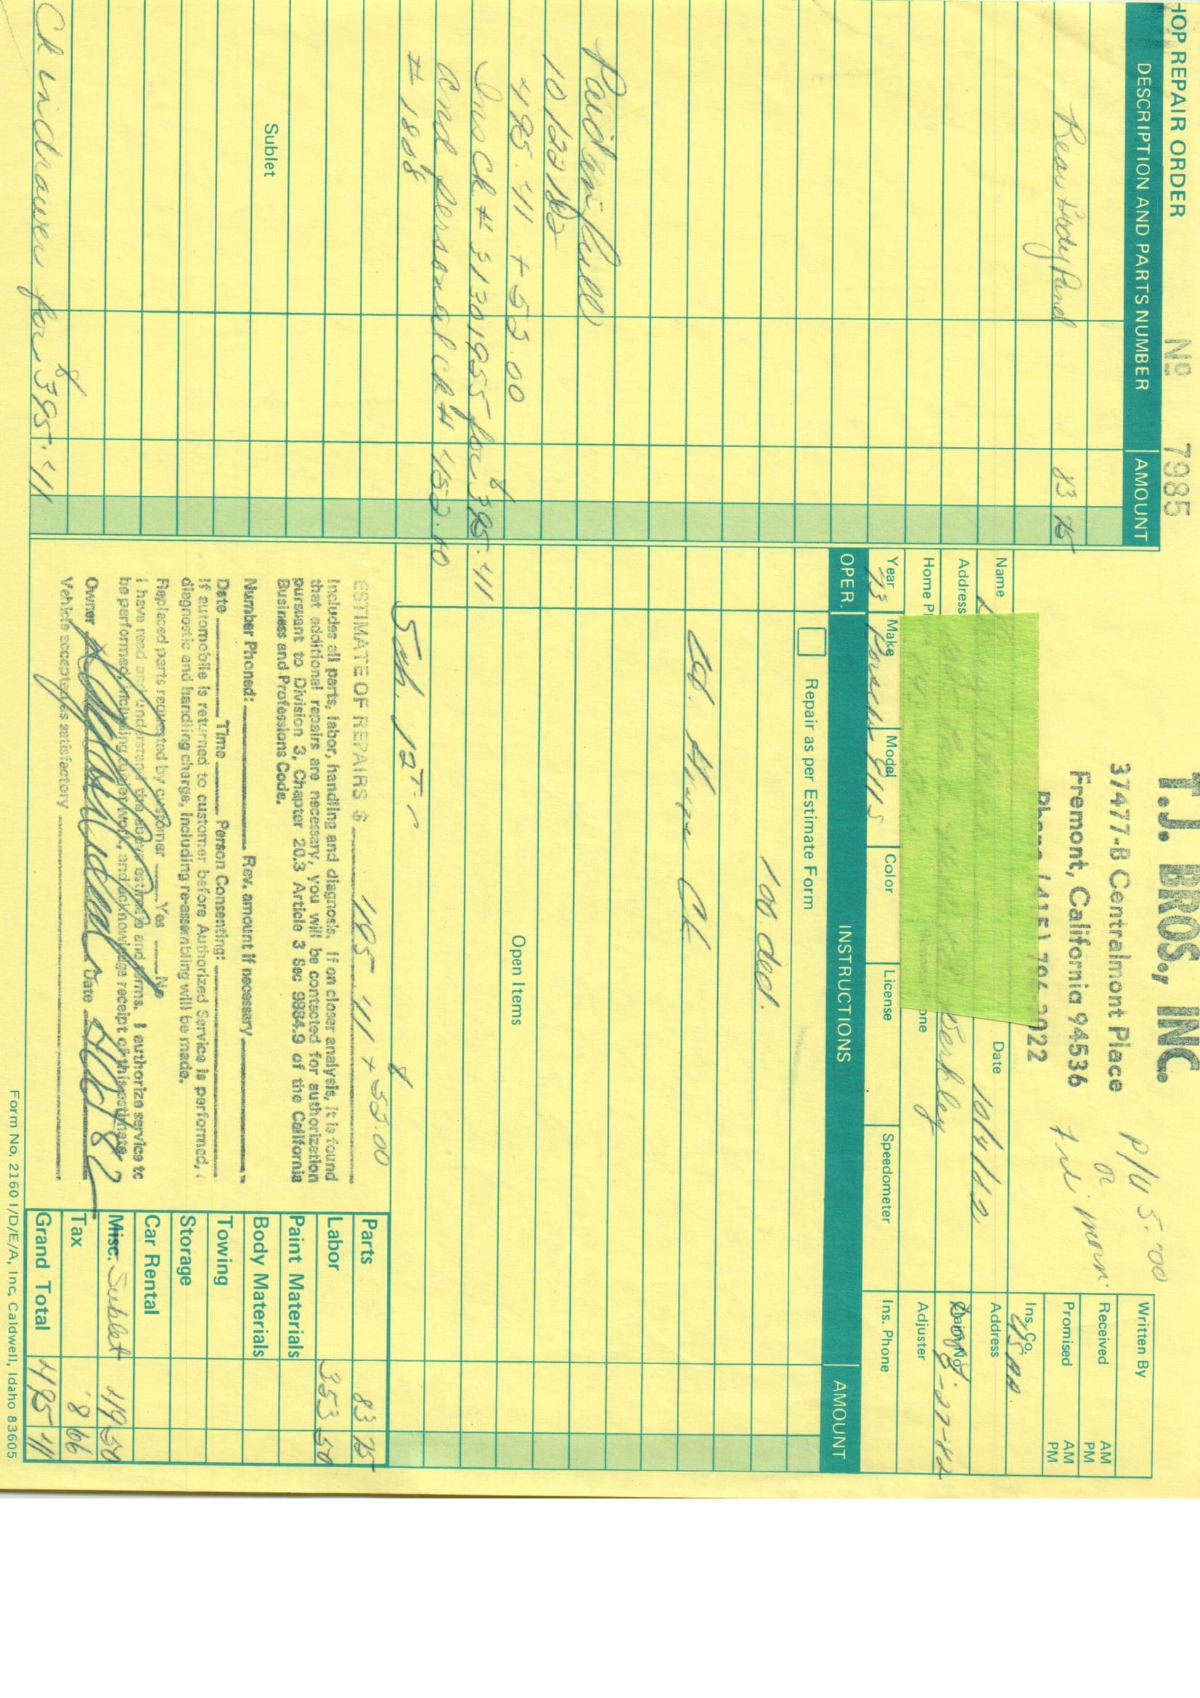 HOP REPAIR ORDER
No 7985
DESCRIPTION AND PARTS NUMBER
AMOUNT
Rear Body Panel 83 75
Paid in full
10/22/82
495.41 + 52.00
Ins Ck # 31301955 for $395.41
and personal ck #
# 1808
Sublet
Ck in drawer for $395.41
T.J. BROS., INC.
37477-B Centralmont Place
Fremont, California 94536
P/U 5:00
Written By
Received AM PM
Promised AM PM
Name
Date 10/4/82
Ins. Co. USAA
Address
Address
Home Ph
one
Adjuster
Year
Make
Model
Color
License
Speedometer
Ins. Phone
Porsche 911S
OPER.
INSTRUCTIONS
AMOUNT
Repair as per Estimate Form
100. ded.
Open Items
ESTIMATE OF REPAIRS $ 495.41 + $52.00
Includes all parts, labor, handling and diagnosis. If on closer analysis, it is found
that additional repairs are necessary, you will be contacted for authorization
pursuant to Division 3, Chapter 20.3 Article 3 Sec 9884.9 of the California
Business and Professions Code.
Number Phoned: Rev. amount if necessary
Date Time Person Consenting:
If automobile is returned to customer before Authorized Service is performed,
diagnostic and handling charge, including re-assembling will be made.
Replaced parts requested by customer Yes No
I have read and understand the above estimate and terms. I authorize service to
be performed, including sublet work, and acknowledge receipt of this estimate.
Owner Date
Vehicle accepted as satisfactory
Parts 83 75
Labor 353 50
Paint Materials
Body Materials
Towing
Storage
Car Rental
Misc. Sublet 49 50
Tax 8 66
Grand Total 495 41
Form No. 2160 I/D/E/A, Inc. Caldwell, Idaho 83605